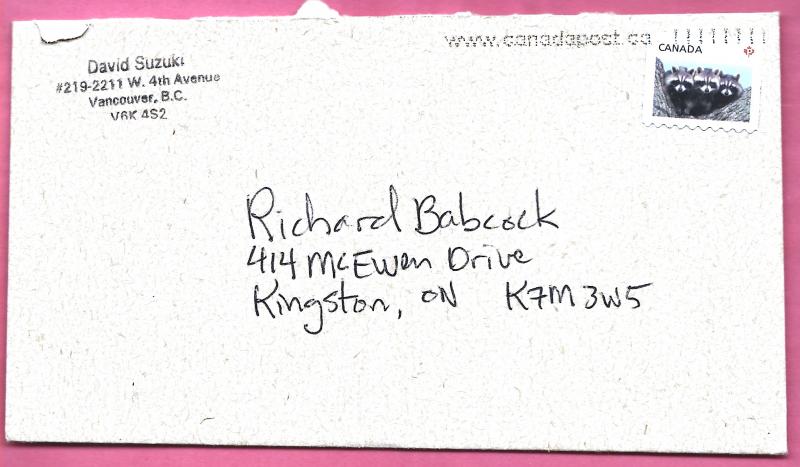 David Suzuki
#219-2211 W. 4th Avenue
Vancouver, B.C.
V6K 4S2
www.canadapost.ca
CANADA
P
Richard Babcock
414 McEwen Drive
Kingston, ON K7M 3W5